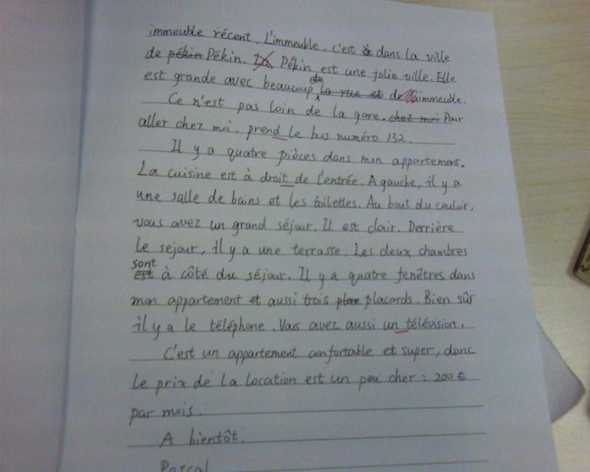 immeuble récent. L'immeuble, c'est dans la ville
de pékin Pékin. Pékin est une jolie ville. Elle
est grande avec beaucoup de la rue et de immeuble.
Ce n'est pas loin de la gare. chez moi Pour
aller chez moi, prend le bus numéro 132.
Il y a quatre pièces dans mon appartement.
La cuisine est à droit de l'entrée. A gauche, il y a
une salle de bains et les toilettes. Au bout du couloir,
vous avez un grand séjour. Il est clair. Derrière
le sejour, il y a une terrasse. Les deux chambres
sont
est à côté du séjour. Il y a quatre fenêtres dans
mon appartement et aussi trois placards. Bien sûr
il y a le téléphone. Vous avez aussi un télévision.
C'est un appartement confortable et super, donc
le prix de la location est un peu cher : 200 €
par mois.
A bientôt.
Pascal